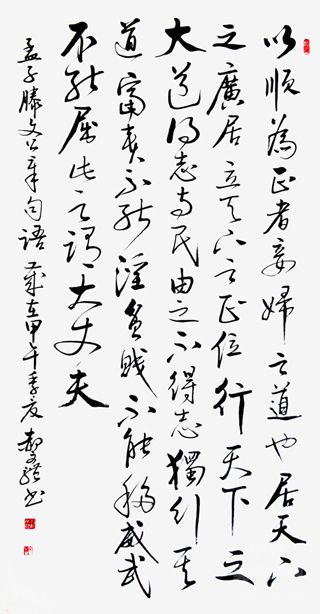 以順為正者妾婦之道也居天下
之廣居立天下之正位行天下之
大道得志與民由之不得志獨行其
道富貴不能淫貧賤不能移威武
不能屈此之謂大丈夫
孟子滕文公章句語 歲在甲午季夏 書